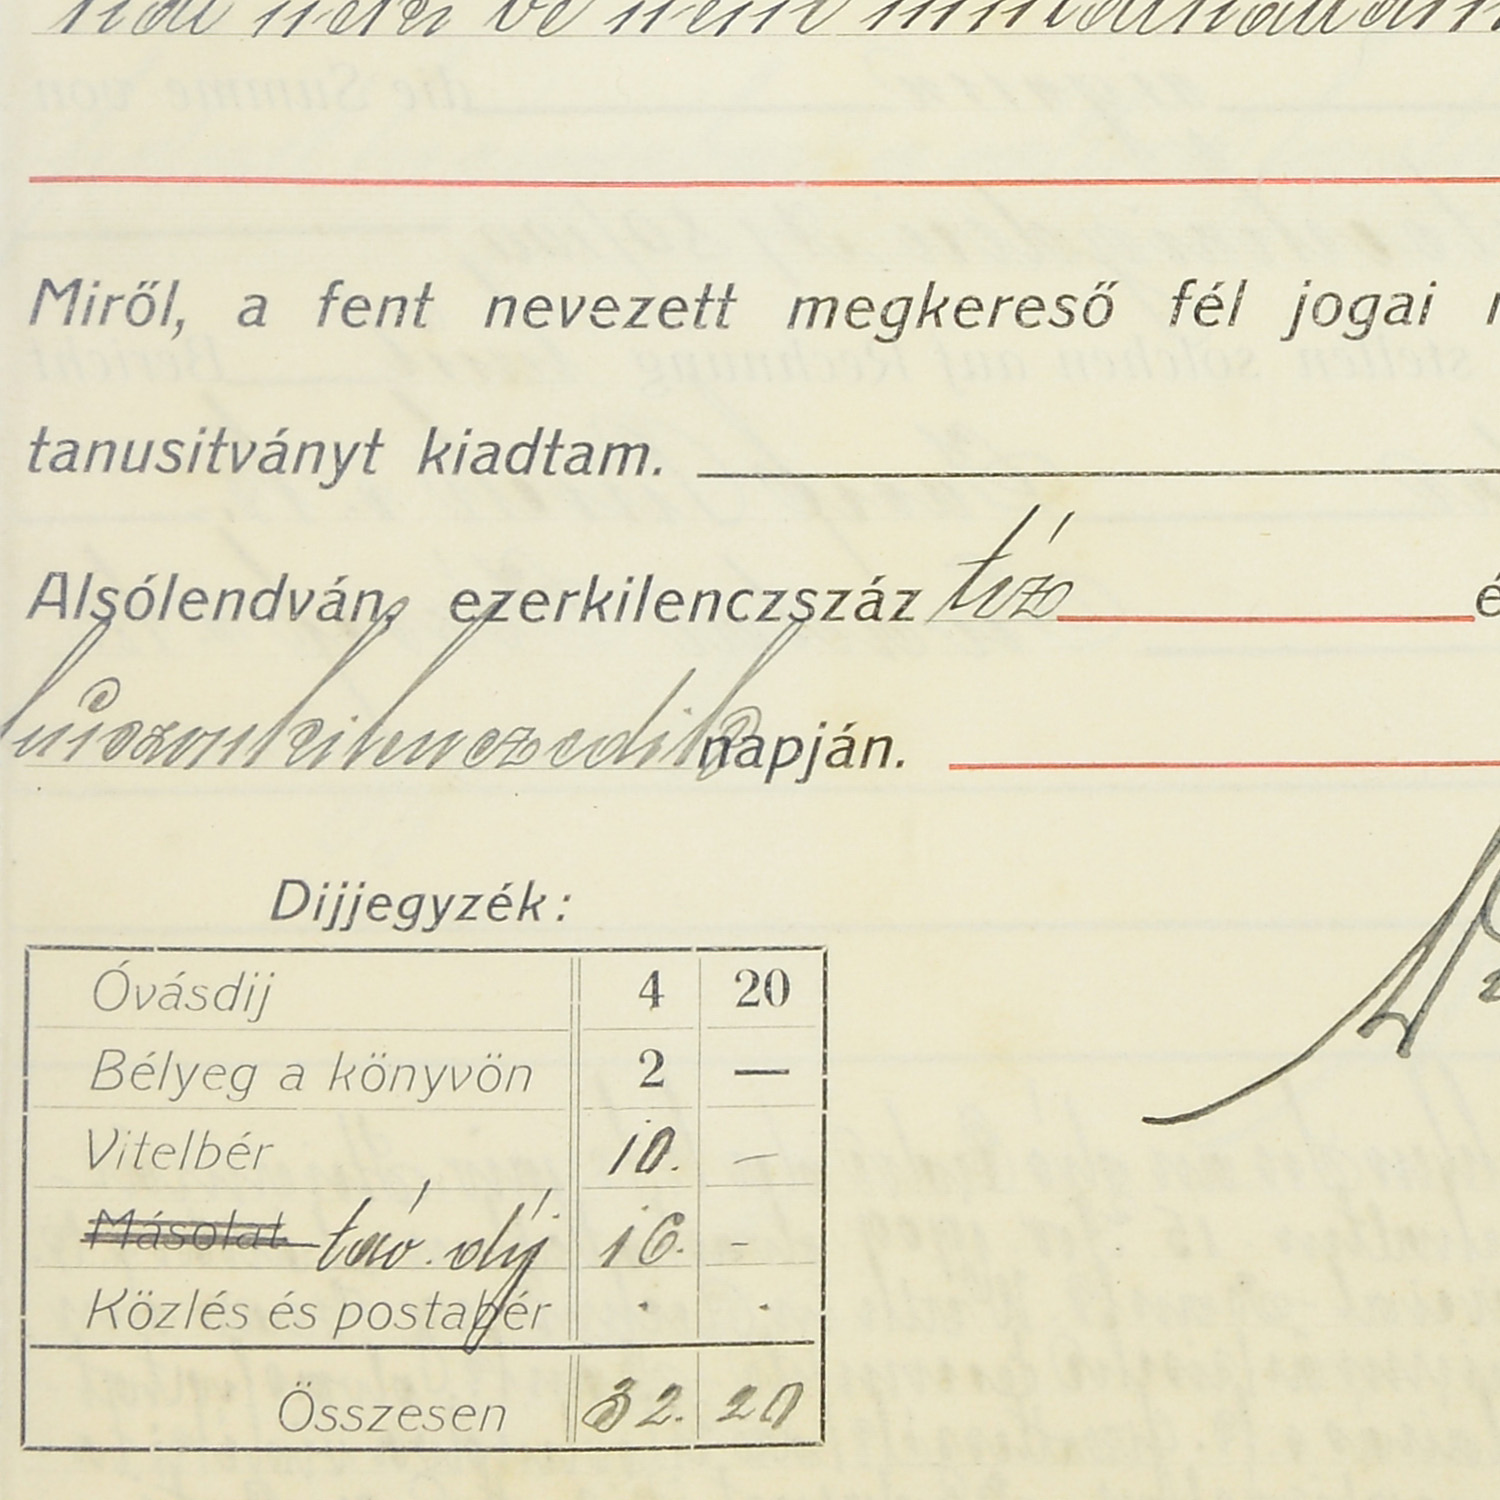 be nem
Miről, a fent nevezett megkereső fél jogai
tanusitványt kiadtam.
Alsólendván, ezerkilenczszáz tíz é
huszonkilenczedik napján.
Dijjegyzék:
Óvásdij 4 20
Bélyeg a könyvön 2 —
Vitelbér 10. —
Másolat táv. díj 16. -
Közlés és postabér . .
Összesen 32. 20